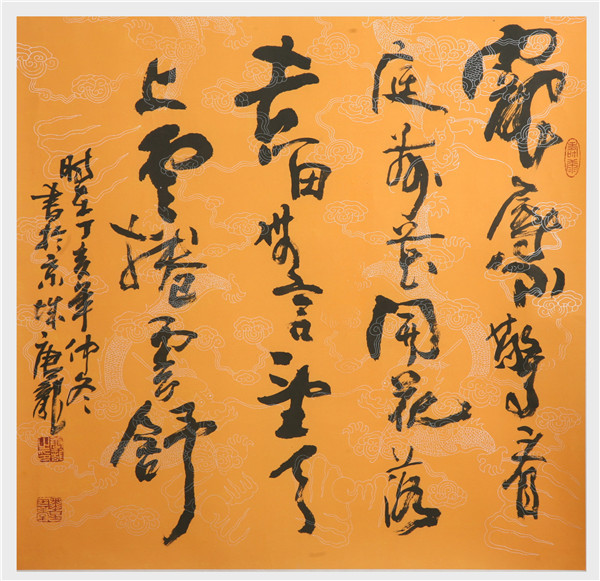 寵辱不驚看
庭前花開花落
去留無意望天
上雲捲雲舒
時在丁亥年仲冬
書於京城唐龍